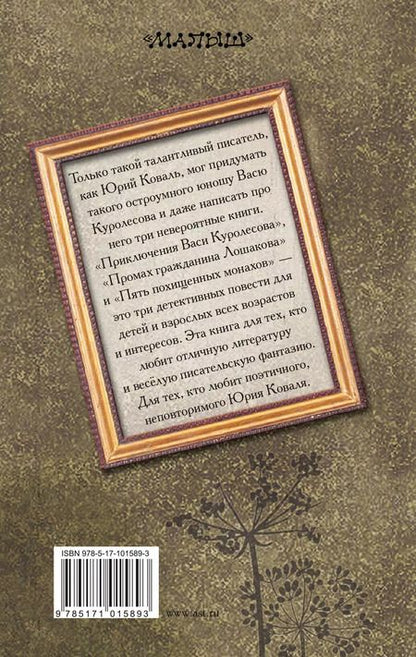 «МАЛЫШ»
Только такой талантливый писатель,
как Юрий Коваль, мог придумать
такого остроумного юношу Васю
Куролесова и даже написать про
него три невероятные книги.
«Приключения Васи Куролесова»,
«Промах гражданина Лошакова»
и «Пять похищенных монахов» —
это три детективных повести для
детей и взрослых всех возрастов
и интересов. Эта книга для тех, кто
любит отличную литературу
и весёлую писательскую фантазию.
Для тех, кто любит поэтичного,
неповторимого Юрия Коваля.
ISBN 978-5-17-101589-3
9 785171 015893
www.ast.ru